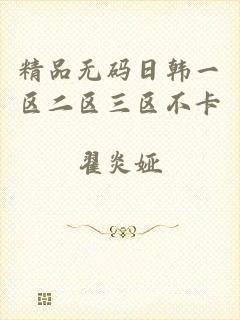 精品无码日韩一
区二区三区不卡
翟炎娅